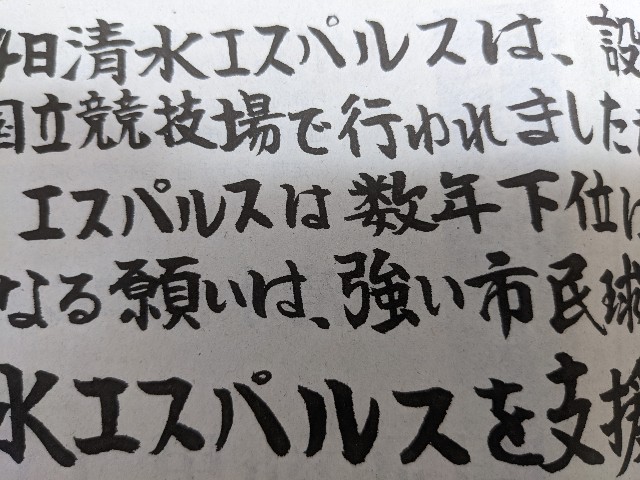 4日清水エスパルスは、設
国立競技場で行われました
エスパルスは数年下位に
なる願いは、強い市民球
水エスパルスを支援